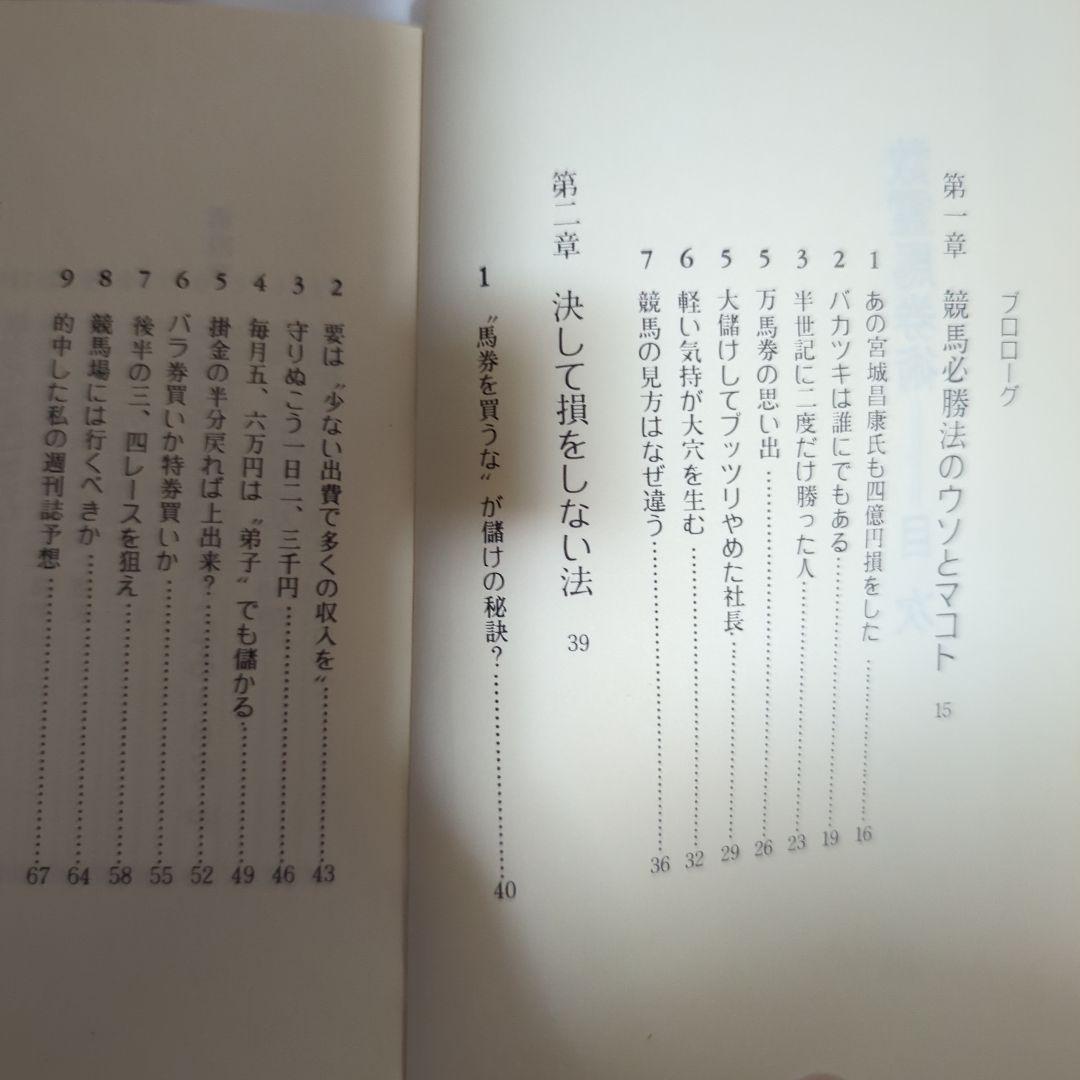 プロローグ
第一章 競馬必勝法のウソとマコト 15
1 あの宮城昌康氏も四億円損をした……………16
2 バカツキは誰にでもある……………19
3 半世紀に二度だけ勝った人……………23
5 万馬券の思い出……………26
5 大儲けしてプッツリやめた社長……………29
6 軽い気持が大穴を生む……………32
7 競馬の見方はなぜ違う……………36
第二章 決して損をしない法 39
1 〝馬券を買うな〟が儲けの秘訣?……………40
2 要は〝少ない出費で多くの収入を〟……………43
3 守りぬこう一日二、三千円……………46
4 毎月五、六万円は〝弟子〟でも儲かる……………49
5 掛金の半分戻れば上出来?……………52
6 バラ券買いか特券買いか……………55
7 後半の三、四レースを狙え……………58
8 競馬場には行くべきか……………64
9 的中した私の週刊誌予想……………67